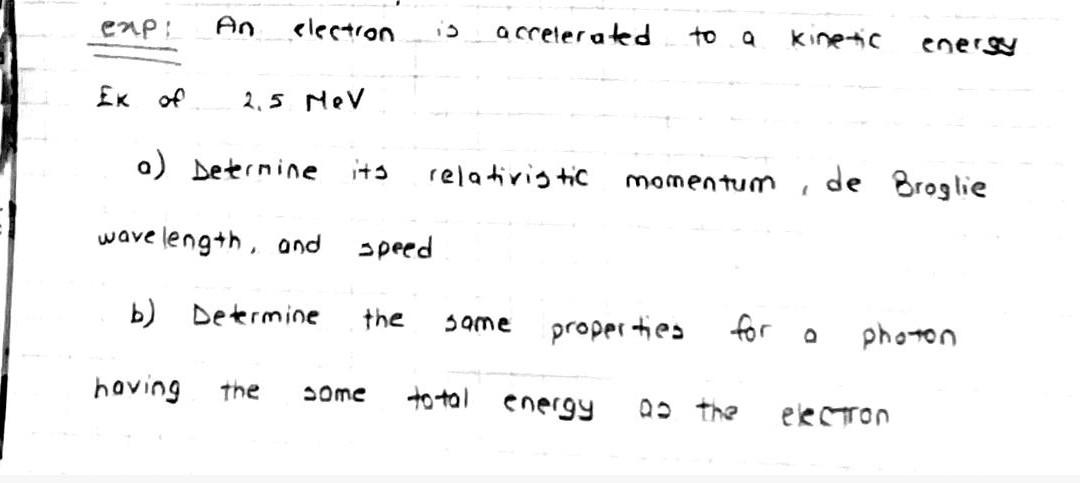 exp: An electron is accelerated to a kinetic energy
Ek of 2,5 MeV
a) Determine its relativistic momentum, de Broglie
wavelength, and speed
b) Determine the same properties for a photon
having the same total energy as the electron